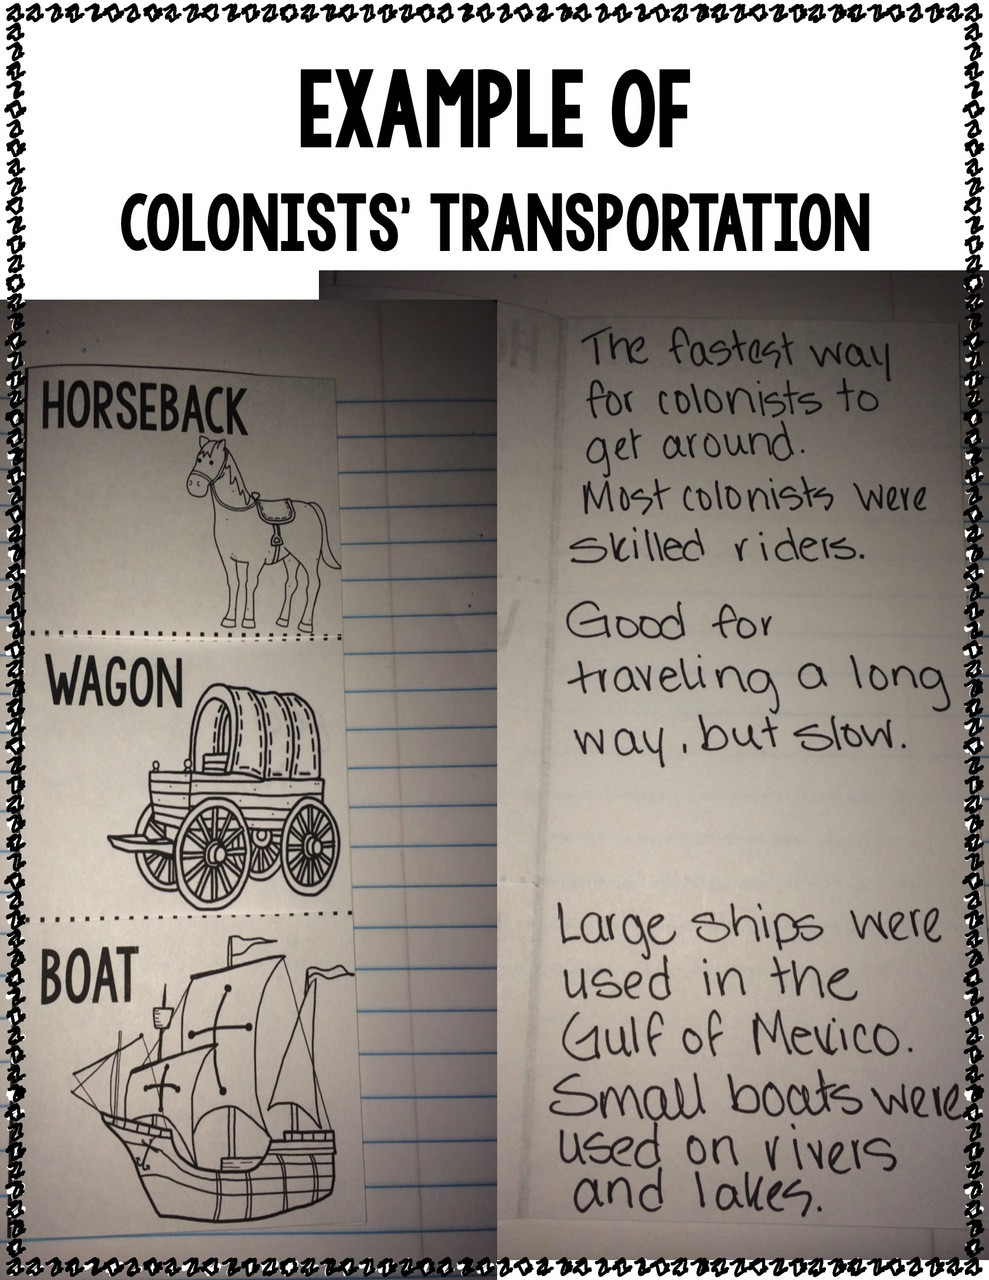 EXAMPLE OF
COLONISTS' TRANSPORTATION
HORSEBACK
The fastest way
for colonists to
get around.
Most colonists were
skilled riders.
WAGON
Good for
traveling a long
way, but slow.
BOAT
Large ships were
used in the
Gulf of Mexico.
Small boats were
used on rivers
and lakes.